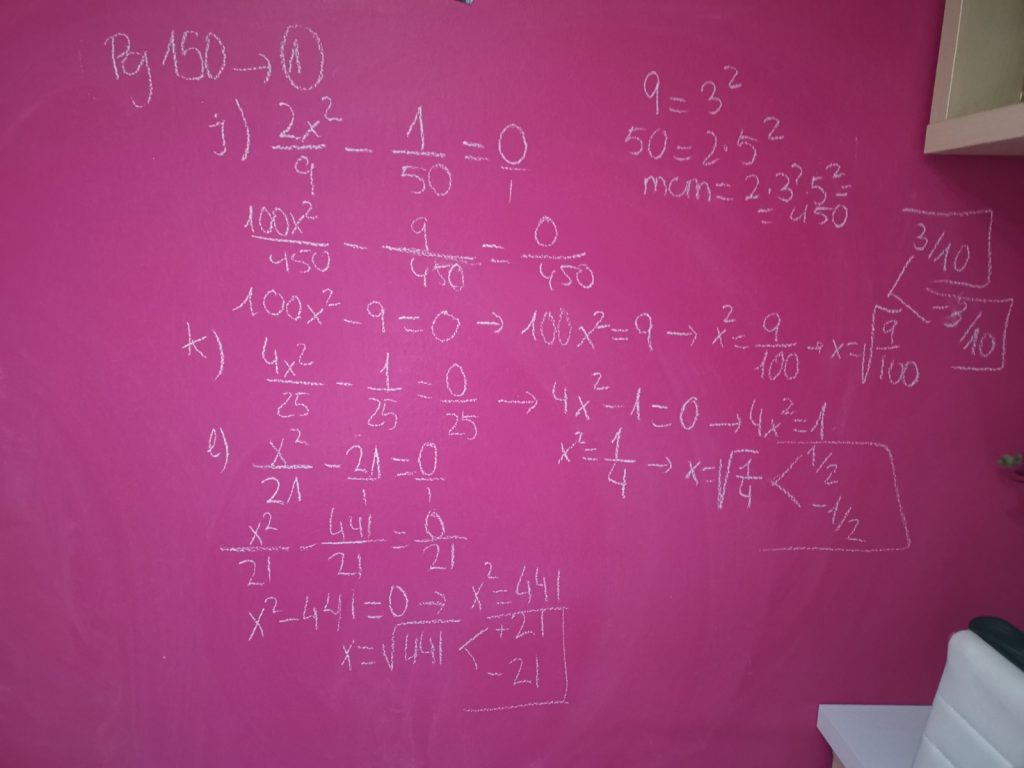 Pg 150 → ①
j) 2x²/9 - 1/50 = 0/1
9 = 3²
50 = 2·5²
mcm = 2·3²·5² =
= 450
100x²/450 - 9/450 = 0/450
100x² - 9 = 0 → 100x² = 9 → x² = 9/100 → x = √9/100 < 3/10
-3/10
k) 4x²/25 - 1/25 = 0/25 → 4x² - 1 = 0 → 4x² = 1
x² = 1/4 → x = √1/4 < 1/2
-1/2
l) x²/21 - 21/1 = 0/1
x²/21 - 441/21 = 0/21
x² - 441 = 0 → x² = 441
x = √441 < +21
-21